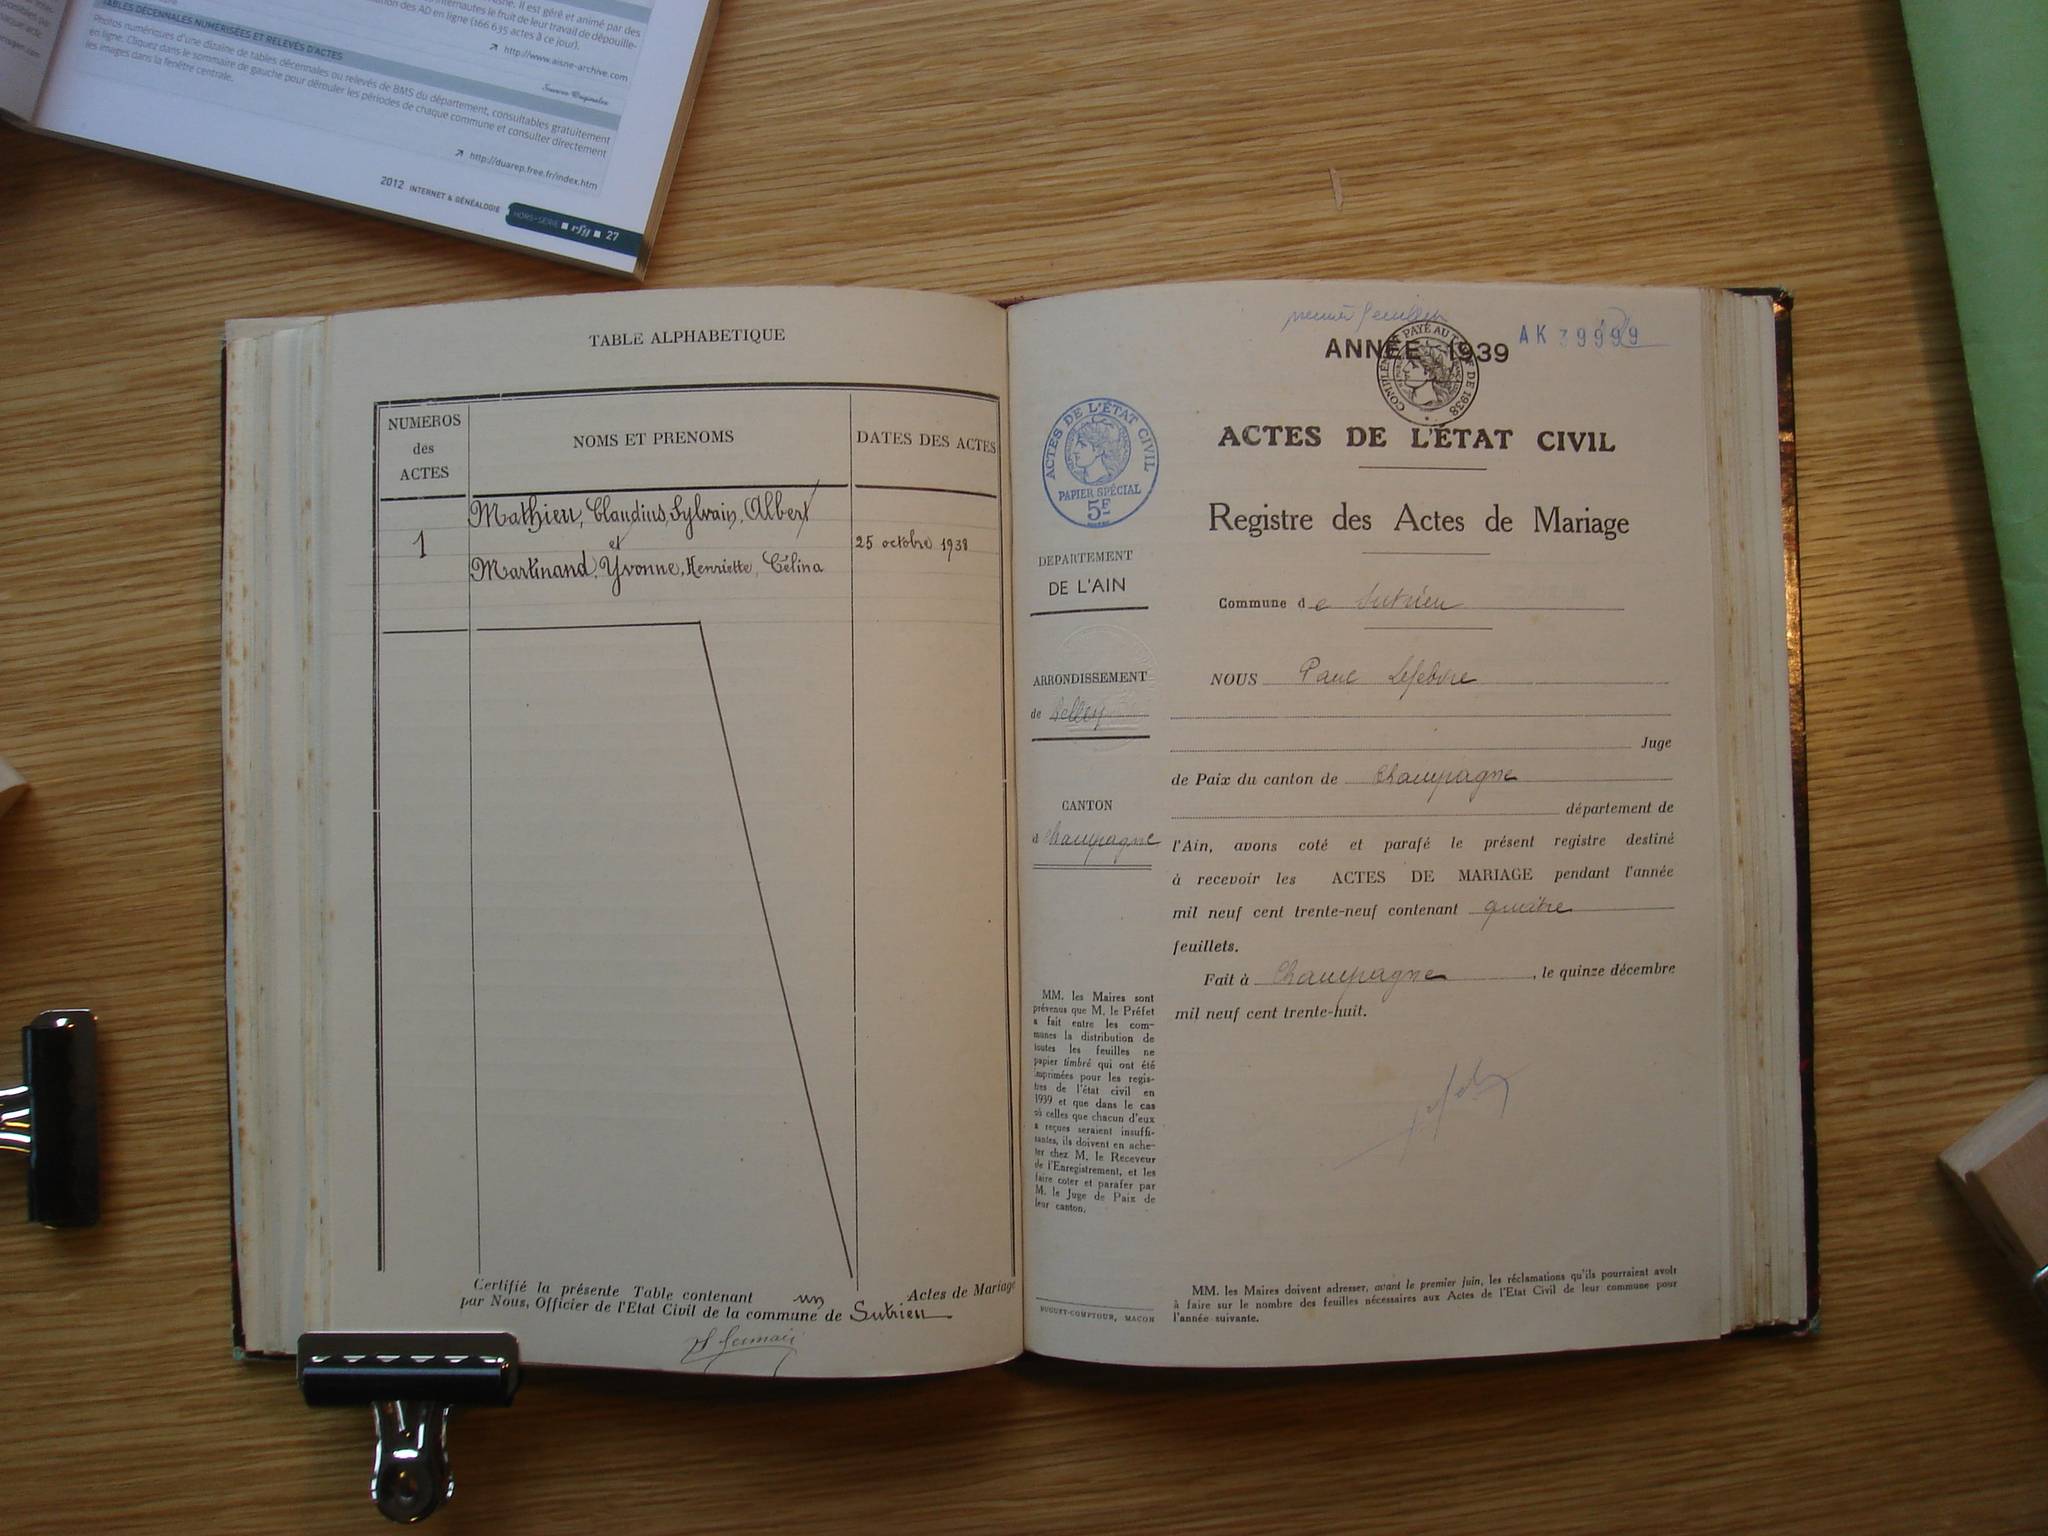 Aisne. Il est géré et animé par des
internautes le fruit de leur travail de dépouille-
ation des AD en ligne (166 635 actes à ce jour).
http://www.aisne-archive.com
TABLES DÉCENNALES NUMÉRISÉES ET RELEVÉS D'ACTES
Photos numériques d'une dizaine de tables décennales ou relevés de BMS du département, consultables gratuitement
en ligne. Cliquez dans le sommaire de gauche pour dérouler les périodes de chaque commune et consulter directement
les images dans la fenêtre centrale.
http://duarep.free.fr/index.htm
2012 INTERNET & GÉNÉALOGIE HORS-SÉRIE rfg 27
TABLE ALPHABETIQUE
NUMEROS
des
ACTES
NOMS ET PRENOMS
DATES DES ACTES
1
Mathieu, Claudius, Sylvain, Albert
et
Martinand, Yvonne, Henriette, Célina
25 octobre 1938
Certifié la présente Table contenant un Actes de Mariage
par Nous, Officier de l'Etat Civil de la commune de Sutrieu
premier feuillet
ANNÉE 1939
AK 39999
COMPLÉMENT PAYÉ AU DE 1938
ACTES DE L'ÉTAT CIVIL
PAPIER SPÉCIAL
5F
ACTES DE L'ÉTAT CIVIL
Registre des Actes de Mariage
DEPARTEMENT
DE L'AIN
ARRONDISSEMENT
de Belley
CANTON
d Champagne
Commune de Sutrieu
NOUS Paul Lefebvre
Juge
de Paix du canton de Champagne
département de
l'Ain, avons coté et parafé le présent registre destiné
à recevoir les ACTES DE MARIAGE pendant l'année
mil neuf cent trente-neuf contenant quatre
feuillets.
Fait à Champagne, le quinze décembre
mil neuf cent trente-huit.
MM. les Maires sont
prévenus que M. le Préfet
a fait entre les com-
munes la distribution de
toutes les feuilles de
papier timbré qui ont été
imprimées pour les regis-
tres de l'état civil en
1939 et que dans le cas
où celles que chacun d'eux
a reçues seraient insuffi-
santes, ils doivent en ache-
ter chez M. le Receveur
de l'Enregistrement, et les
faire coter et parafer par
M. le Juge de Paix de
leur canton.
BUGUET-COMPTOUR, MACON
MM. les Maires doivent adresser, avant le premier juin, les réclamations qu'ils pourraient avoir
à faire sur le nombre des feuilles nécessaires aux Actes de l'Etat Civil de leur commune pour
l'année suivante.